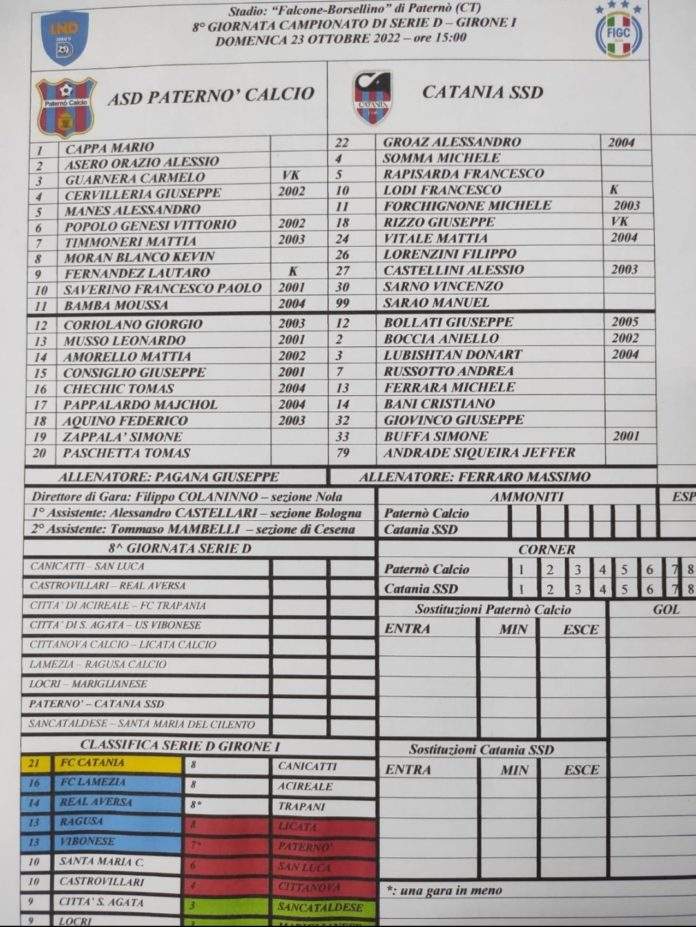 Stadio: "Falcone-Borsellino" di Paternò (CT)
8° GIORNATA CAMPIONATO DI SERIE D – GIRONE I
DOMENICA 23 OTTOBRE 2022 – ore 15:00
LND
FIGC
Paternò Calcio
ASD PATERNO' CALCIO
CATANIA
CATANIA SSD
1 CAPPA MARIO
2 ASERO ORAZIO ALESSIO
3 GUARNERA CARMELO VK
4 CERVILLERIA GIUSEPPE 2002
5 MANES ALESSANDRO
6 POPOLO GENESI VITTORIO 2002
7 TIMMONERI MATTIA 2003
8 MORAN BLANCO KEVIN
9 FERNANDEZ LAUTARO K
10 SAVERINO FRANCESCO PAOLO 2001
11 BAMBA MOUSSA 2004
12 CORIOLANO GIORGIO 2003
13 MUSSO LEONARDO 2001
14 AMORELLO MATTIA 2002
15 CONSIGLIO GIUSEPPE 2001
16 CHECHIC TOMAS 2004
17 PAPPALARDO MAJCHOL 2004
18 AQUINO FEDERICO 2003
19 ZAPPALA' SIMONE
20 PASCHETTA TOMAS
22 GROAZ ALESSANDRO 2004
4 SOMMA MICHELE
5 RAPISARDA FRANCESCO
10 LODI FRANCESCO K
11 FORCHIGNONE MICHELE 2003
18 RIZZO GIUSEPPE VK
24 VITALE MATTIA 2004
26 LORENZINI FILIPPO
27 CASTELLINI ALESSIO 2003
30 SARNO VINCENZO
99 SARAO MANUEL
12 BOLLATI GIUSEPPE 2005
2 BOCCIA ANIELLO 2002
3 LUBISHTAN DONART 2004
7 RUSSOTTO ANDREA
13 FERRARA MICHELE
14 BANI CRISTIANO
32 GIOVINCO GIUSEPPE
33 BUFFA SIMONE 2001
79 ANDRADE SIQUEIRA JEFFER
ALLENATORE: PAGANA GIUSEPPE
ALLENATORE: FERRARO MASSIMO
Direttore di Gara: Filippo COLANINNO – sezione Nola
1° Assistente: Alessandro CASTELLARI – sezione Bologna
2° Assistente: Tommaso MAMBELLI – sezione di Cesena
AMMONITI ESP
Paternò Calcio
Catania SSD
8^ GIORNATA SERIE D
CANICATTI – SAN LUCA
CASTROVILLARI – REAL AVERSA
CITTA' DI ACIREALE – FC TRAPANI
CITTA' DI S. AGATA – US VIBONESE
CITTANOVA CALCIO – LICATA CALCIO
LAMEZIA – RAGUSA CALCIO
LOCRI – MARIGLIANESE
PATERNO' – CATANIA SSD
SANCATALDESE – SANTA MARIA DEL CILENTO
CORNER
Paternò Calcio 1 2 3 4 5 6 7 8
Catania SSD 1 2 3 4 5 6 7 8
Sostituzioni Paternò Calcio
GOL
ENTRA MIN ESCE
Sostituzioni Catania SSD
ENTRA MIN ESCE
*: una gara in meno
CLASSIFICA SERIE D GIRONE I
21 FC CATANIA
16 FC LAMEZIA
14 REAL AVERSA
13 RAGUSA
13 VIBONESE
10 SANTA MARIA C.
10 CASTROVILLARI
9 CITTA' S. AGATA
9 LOCRI
8 CANICATTI
8 ACIREALE
8* TRAPANI
8 LICATA
7* PATERNO'
6 SAN LUCA
4 CITTANOVA
3 SANCATALDESE